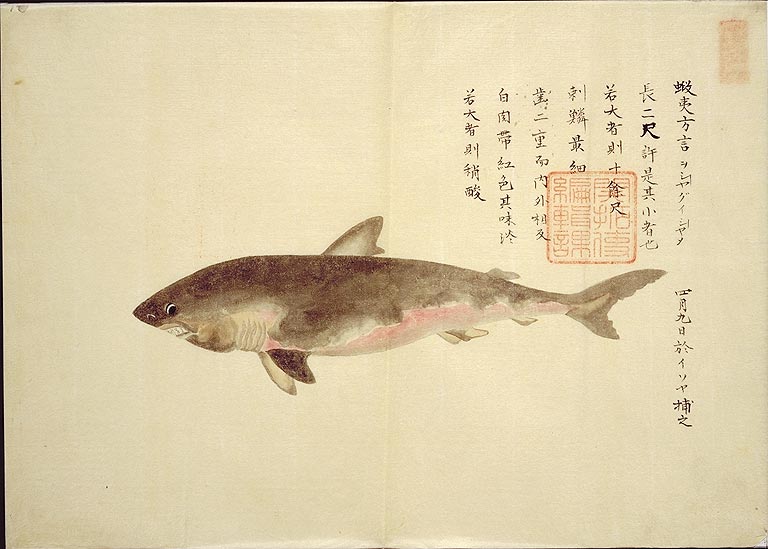 蝦夷方言 ヲシヤグイシヤメ
四月九日於イソヤ捕之
長二尺許是其小者也
若大者則十餘尺
刺鱗最細
歯二重而内外相反
白肉帶紅色其味淡
若大者則稍酸